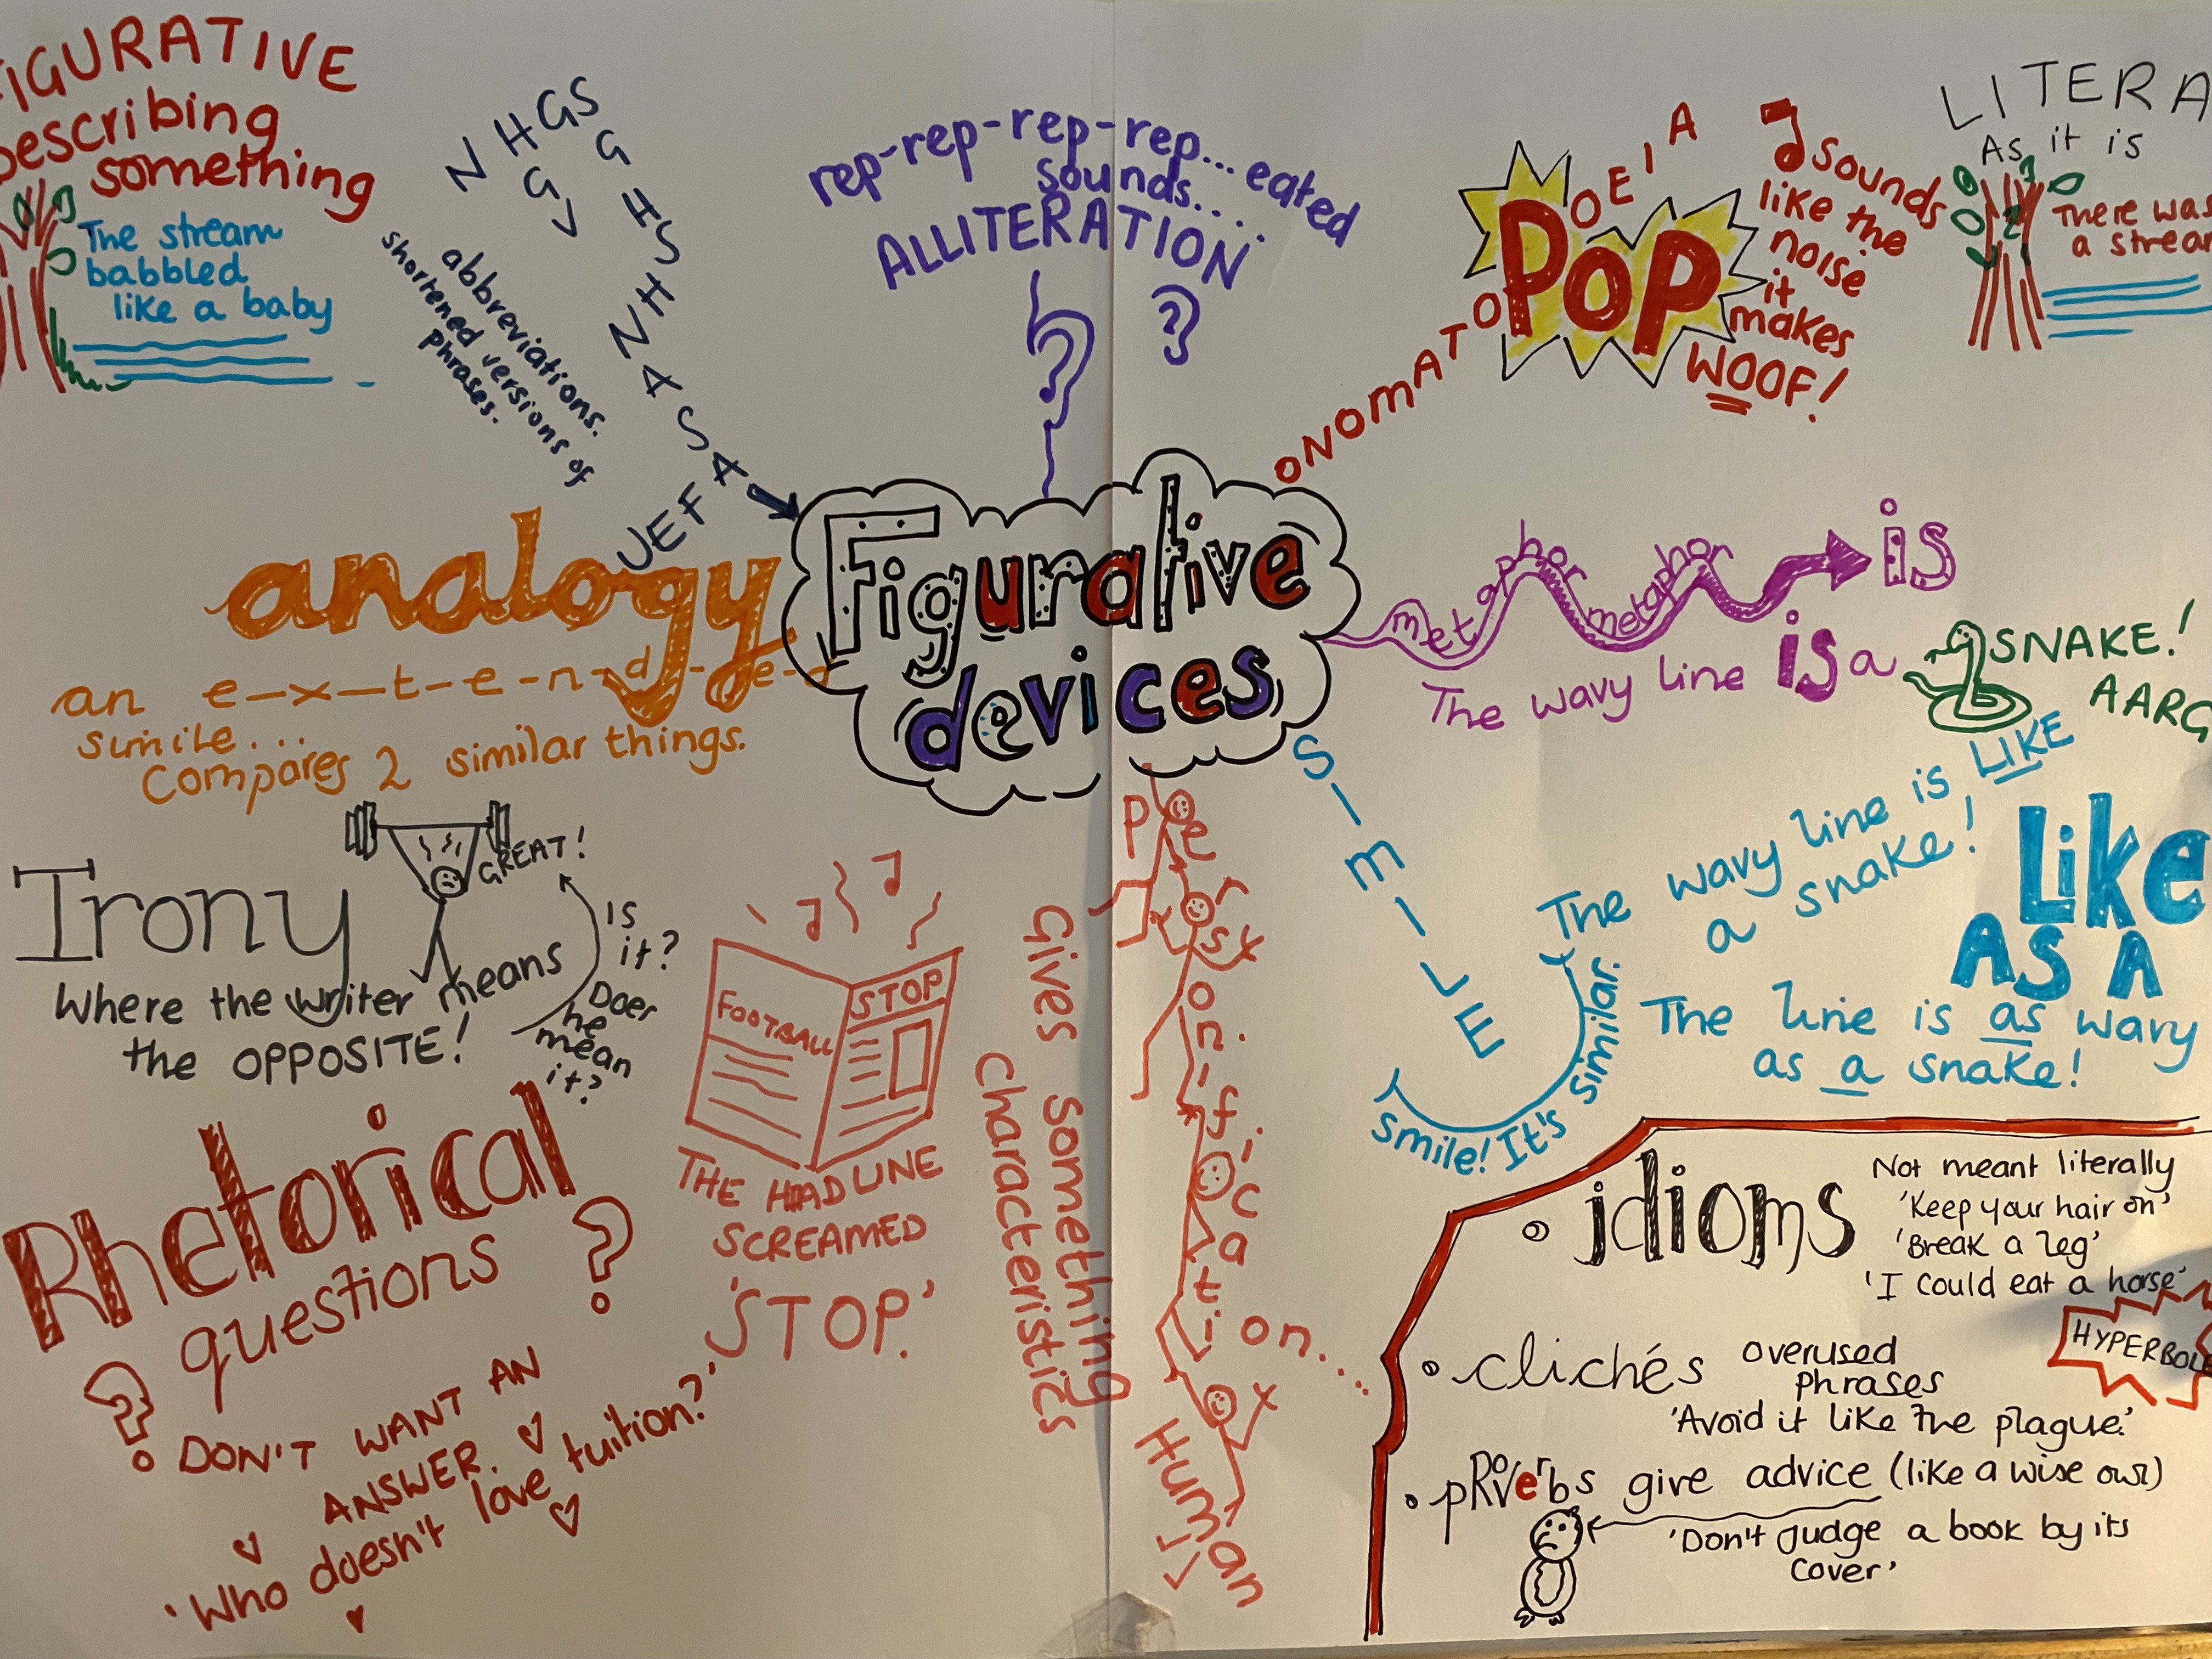 FIGURATIVE
Describing
something
The stream
babbled
like a baby
NHGS
G
G
H
S
N H
N
A
S
A
UEFA
abbreviations.
shortened versions of
phrases.
rep-rep-rep-rep...eated
sounds....
ALLITERATION
ONOMATOPOEIA
POP
sounds
like the
noise
it
makes
WOOF!
LITERA
As it is
There was
a strea
Figurative
devices
analogy
an e-x-t-e-n-d-e-d
simile...
Compares 2 similar things.
metaphor metaphor
is
The wavy line is a
SNAKE!
AARG
SIMILE
Smile! It's similar.
The wavy line is LIKE
a snake!
Like
AS A
The line is as wavy
as a snake!
Irony
GREAT!
Is
it?
Does
he
mean
it?
Where the writer means
the OPPOSITE!
FOOTBALL
STOP
THE HEADLINE
SCREAMED
'STOP.'
Person.ification...
Gives something
characteristics
Human
Rhetorical
questions
?
?
DON'T WANT AN
ANSWER.
'Who doesn't love tuition?'
idioms
Not meant literally
'Keep your hair on'
'Break a leg'
'I could eat a horse'
HYPERBOLE
clichés overused
phrases
'Avoid it like the plague.'
pROVerbs give advice (like a wise owl)
'Don't judge a book by its
cover'